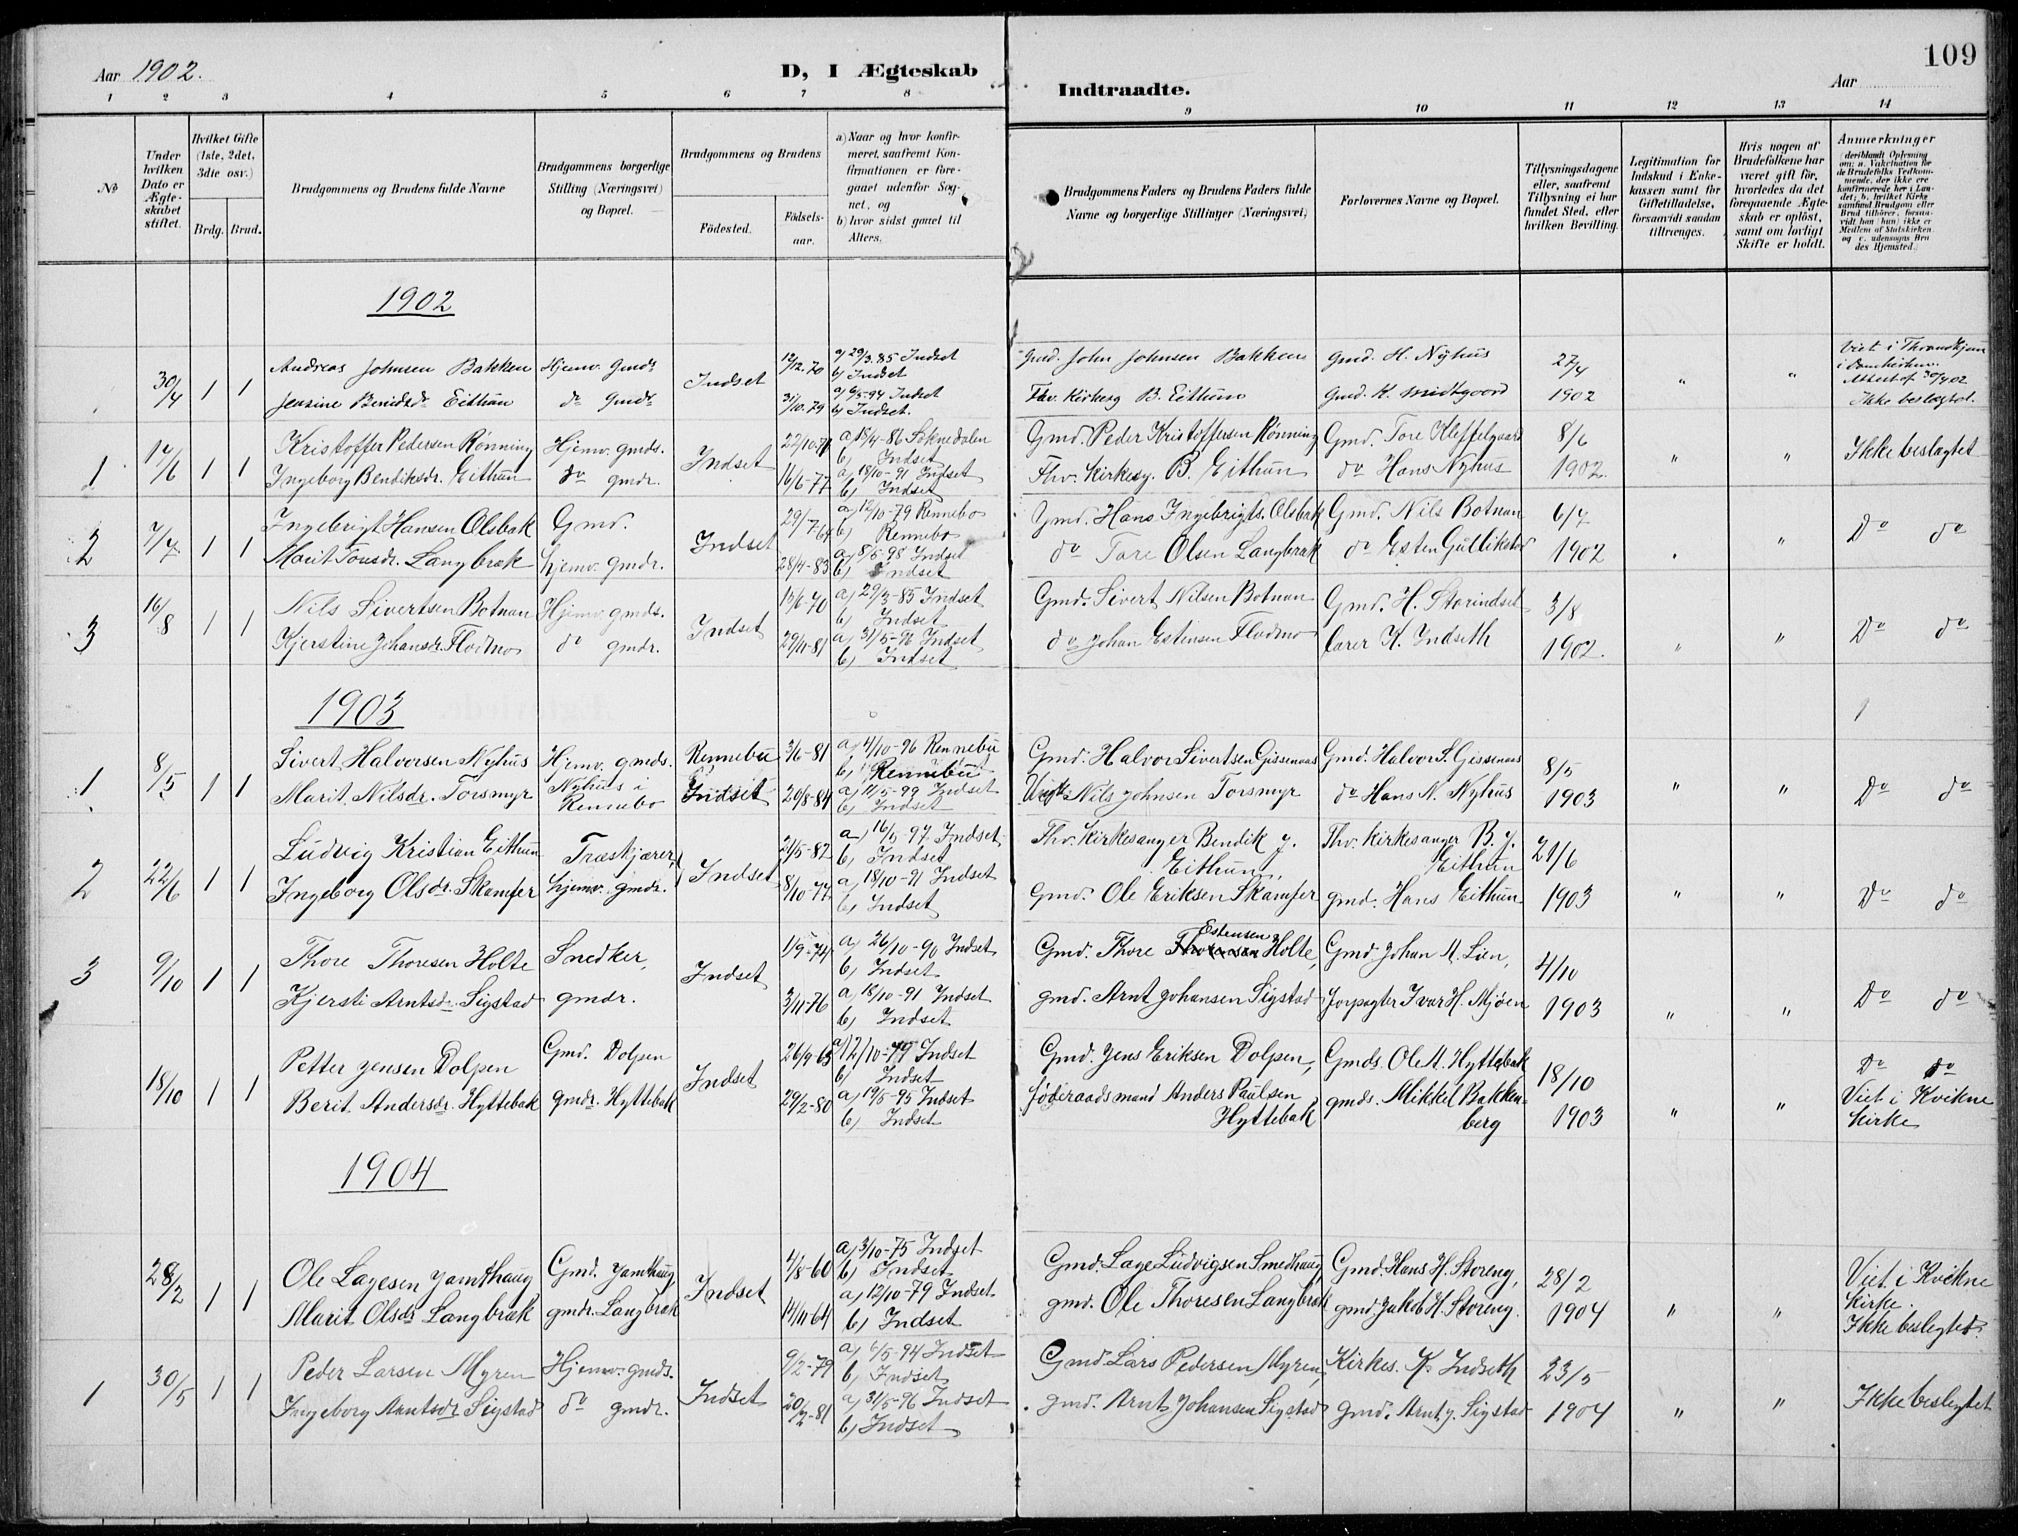 Aar 1902.
D, I Ægteskab
Indtraadte.
Aar
109
1 2 3 4 5 6 7 8 9 10 11 12 13 14
No
Under hvilken Dato er Ægteskabet stiftet.
Hvilket Gifte (1ste, 2det, 3die osv.)
Brdg. Brud.
Brudgommens og Brudens fulde Navne
Brudgommens borgerlige Stilling (Næringsvei) og Bopæl.
Brudgommens og Brudens
Födested.
Födselsaar.
a) Naar og hvor konfirmeret, saafremt Konfirmationen er foregaaet udenfor Sognet, og
b) hvor sidst gaaet til Alters.
Brudgommens Faders og Brudens Faders fulde Navne og borgerlige Stillinger (Næringsvei)
Forlovernes Navne og Bopæl.
Tillysningsdagene eller, saafremt Tillysning ei har fundet Sted, efter hvilken Bevilling.
Legitimation for Indskud i Enkekassen samt for Giftetilladelse, forsaavidt saadan tiltrænges.
Hvis nogen af Brudefolkene har været gift før, hvorledes da det foregaaende Ægteskab er oplöst, samt om lovligt Skifte er holdt.
Anmerkninger
1902
30/4 1 1 Andreas Johnsen Bakken Hjemv. Gmds Indset 12/12.70 a) 29/3.85 Indset Gmd. John Johnsen Bakken Gmd. H. Nyhus 27/4 " " Viet i Throndhjem
b) Indset i Domkirken.
Jensine Bendiksdr Eithun do Gmdr 31/10.79 a) 6/5-94 Indset Fhv. Kirkesg B. Eithun Gmd. K. Midtgaard 1902 Attest af 30/4 02
b) Indset. Ikke beslægtet.
1 17/6 1 1 Kristoffer Pedersen Rønning Hjemv. gmds. Indset 22/10.71 a) 18/4-86 Soknedalen Gmd. Peder Kristoffersen Rønning Gmd. Tore Kleffelgaard 8/6 " " Ikke beslægtet
b) Indset
Ingeborg Bendiksdr. Eithun do gmdr. 16/6-77 a) 18/10-91 Indset Fhv. Kirkesg. B. Eithun do Hans Nyhus 1902.
b) Indset
2 7/7. 1 1 Ingebrigt Hansen Olsbak Gmd. Indset 29/7 64 a) 12/10-79 Rennebo Gmd. Hans Ingebrigts. Olsbak Gmd. Nils Botnan 6/7 " Do do
b) Rennebo
Marit Toresdr. Langbrak hjemv. gmdr. 28/4-83 a) 8/5-98 Indset do Tore Olsen Langbrak do Esten Gullikstad 1902
b) Indset
3 16/8 1 1 Nils Sivertsen Botnan Hjemv. gmds. Indset 13/6-70 a) 29/3-85 Indset Gmd. Sivert Nilsen Botnan Gmd. H. Storindset 3/8 " " Do do
b) Indset
Kjerstine Johansdr. Flodmo do gmdr. 29/11-81 a) 31/5-96 Indset do Johan Estensen Flodmo Lærer K. Indseth 1902.
b) Indset
1903
1 8/5 1 1 Sivert Halvorsen Nyhus Hjemv. gmds. Rennebu 3/6-81 a) 4/10-96 Rennebu Gmd. Halvor Sivertsen Gissenaas Gmd. Halvor S. Gissenaas 8/5 " " Do do
Nyhus i b) Rennebu
Marit Nilsdr. Torsmyr Rennebo Indset 20/8-84 a) 14/5-99 Indset Nils Johnsen Torsmyr do Hans N. Nyhus 1903
b) Indset
2 22/6 1 1 Ludvig Kristian Eithun Træskjærer, Indset 21/5-82 a) 16/5-97 Indset Fhv. kirkesanger Bendik J. Fhv. kirkesanger B. J. 21/6 " " Do do
b) Indset Eithun, Eithun
Ingeborg Olsdr. Skamfer hjemv. gmdr. 8/10-77 a) 18/10-91 Indset Gmd. Ole Eriksen Skamfer gmd. Hans Eithun 1903
b) Indset
3 9/10 1 1 Thore Thoresen Holte Snedker, Indset 1/9-74 a) 26/10-90 Indset Gmd. Thore Estensen Holte, Gmd. Johan M. Lien, 4/10 " " Do do
b) Indset
Kjersti Arntsdr. Sigstad gmdr. 3/11-76 a) 18/10-91 Indset gmd. Arnt Johansen Sigstad Forpagter Ivar H. Mjøen 1903
b) Indset
18/10 1 1 Petter Jensen Dolpen Gmd. Dolpen Indset 26/9-65 a) 12/10-79 Indset Gmd. Jens Eriksen Dolpen, Gmds. Ole M. Hyttebak 18/10 " " Do do
b) Indset
Berit Andersdr. Hyttebak gmdr. Hyttebak 29/2-80 a) 19/5-95 Indset føderaadsmand Anders Paulsen gmds. Mikkel Bakken- 1903 Viet i Kvikne
b) Indset Hyttebak berg Kirke
1904
28/2 1 1 Ole Lagesen Jamthaug Gmd. Jamthaug, Indset 4/8-60 a) 3/10-75 Indset Gmd. Lage Ludvigsen Smedhaug, Gmd. Hans H. Storeng, 28/2 " " Viet i Kvikne
b) Indset Kirke.
Marit Olsdr Langbrak gmdr. Langbrak 14/11-64 a) 12/10-79 Indset gmd. Ole Thoresen Langbrak gmd. Jakob H. Storeng. 1904 Ikke beslegtet.
b) Indset
1 30/5 1 1 Peder Larsen Myren Hjemv. gmds. Indset 9/2-79 a) 6/5-94 Indset Gmd. Lars Pedersen Myren, Kirkes. K. Indseth 23/5 " " Ikke beslegtet
b) Indset
Ingeborg Arntsdr Sigstad do gmdr. 20/2-81 a) 31/5-96 Indset gmd. Arnt Johansen Sigstad gmd. Arnt J. Sigstad 1904
b) Indset